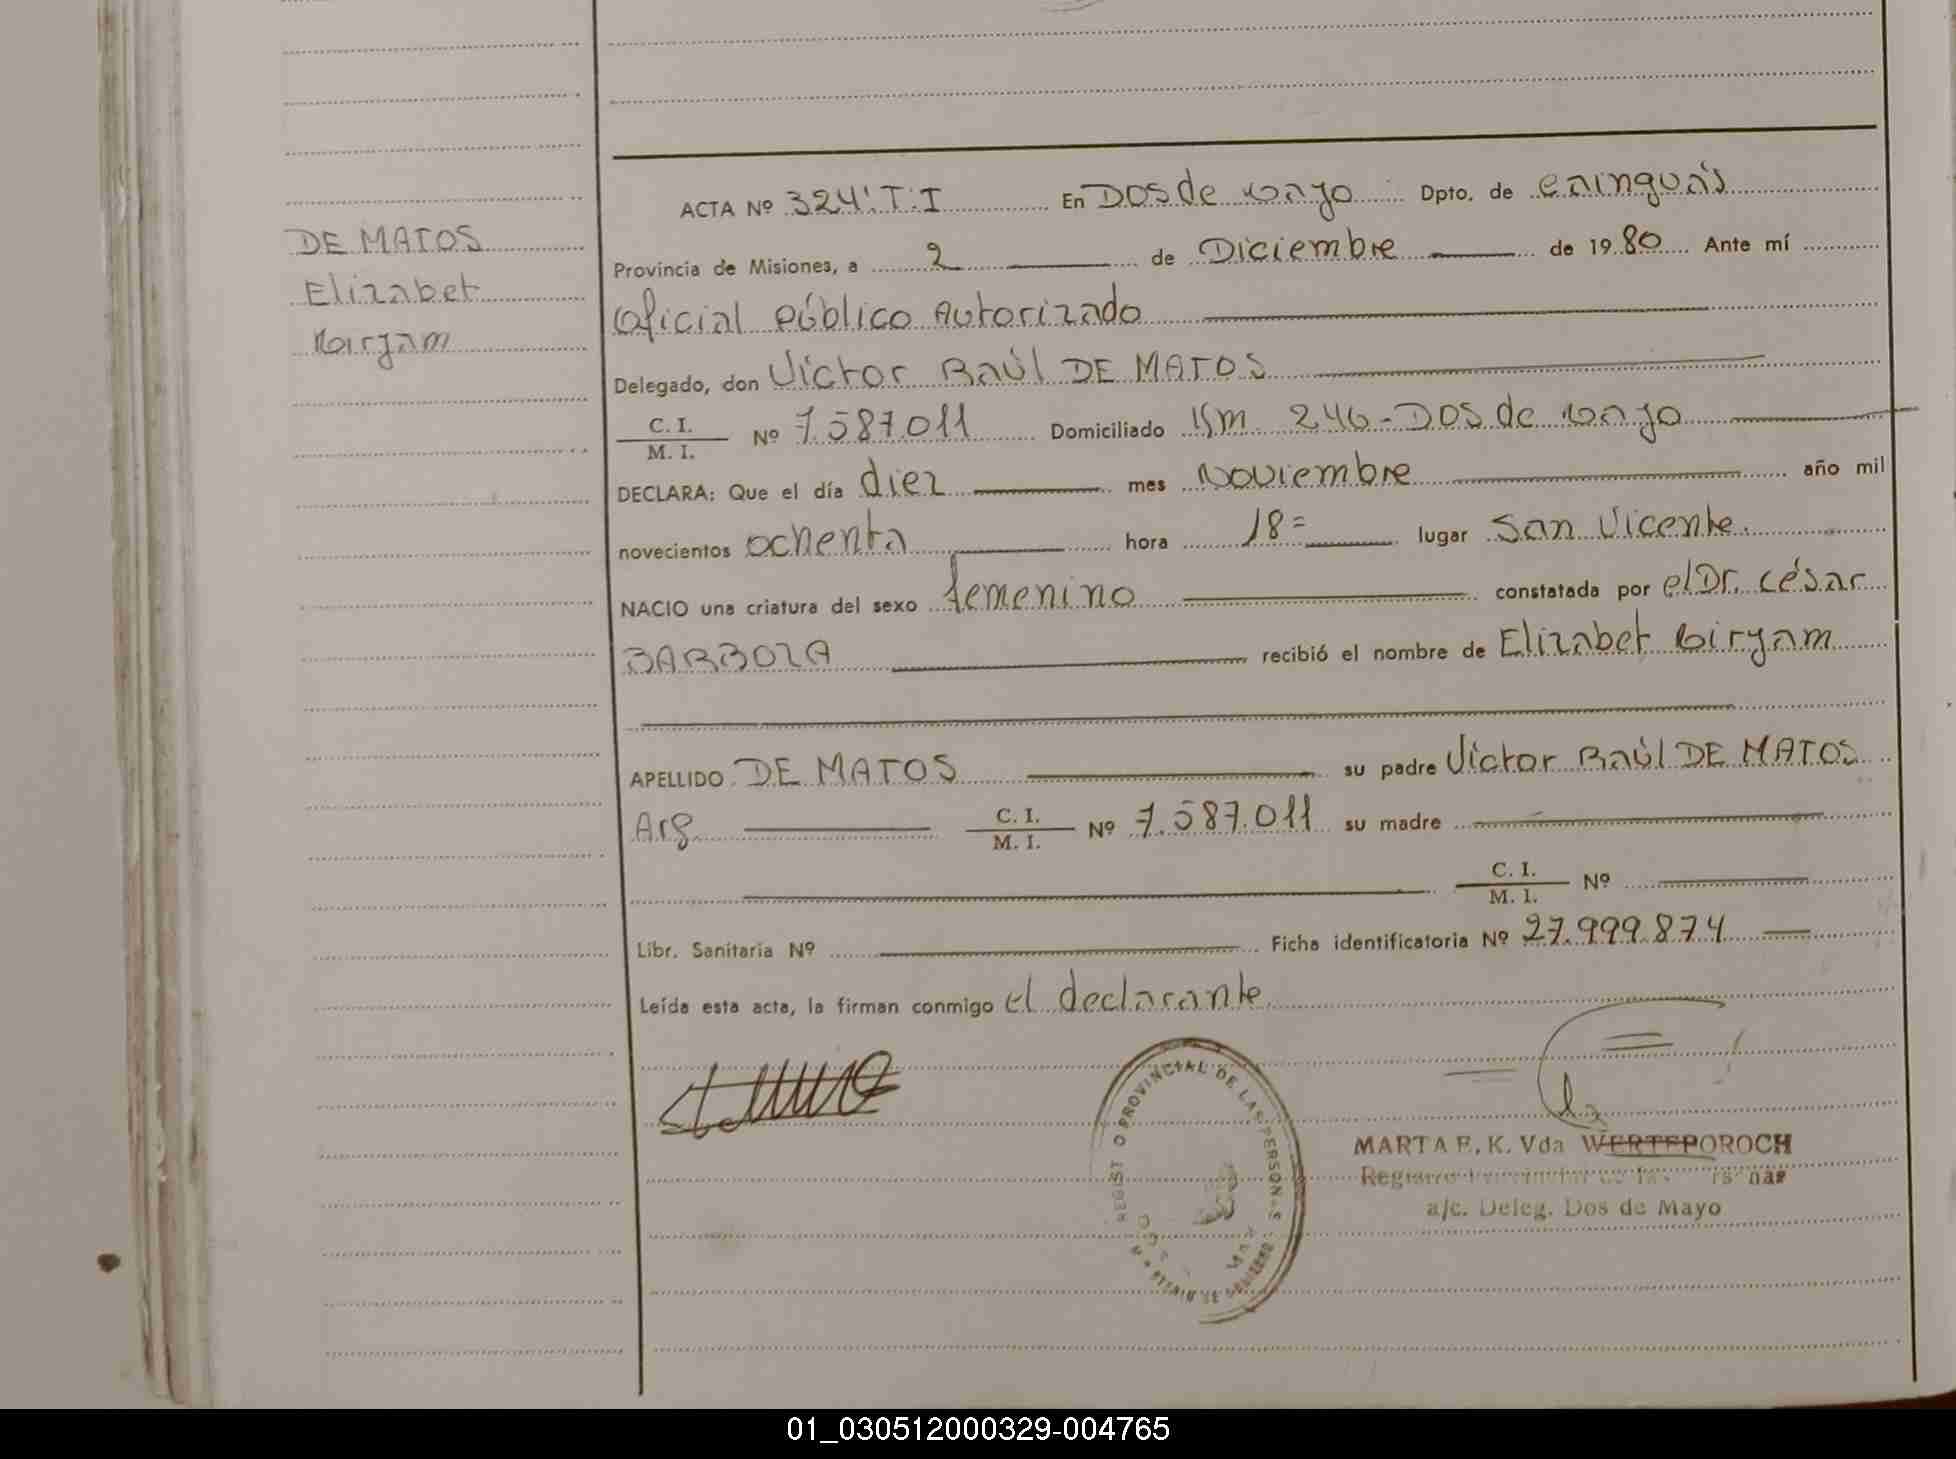 DE MATOS
Elizabet
Miryam
ACTA Nº 324'T.I En Dos de Mayo Dpto. de Cainguás
Provincia de Misiones, a 2 de Diciembre de 1980 Ante mí
Oficial Público Autorizado
Delegado, don Victor Raúl DE MATOS
C. I.
M. I.
Nº 7.587.011 Domiciliado Km 246-Dos de Mayo
DECLARA: Que el día diez mes Noviembre año mil
novecientos ochenta hora 18= lugar San Vicente.
NACIO una criatura del sexo femenino constatada por el Dr. César
BARBOZA recibió el nombre de Elizabet Miryam
APELLIDO DE MATOS su padre Victor Raúl DE MATOS
Arg. C. I.
M. I.
Nº 7.587.011 su madre
C. I.
M. I.
Nº
Libr. Sanitaria Nº Ficha identificatoria Nº 27.999.874
Leída esta acta, la firman conmigo el declarante
PROVINCIAL DE LAS PERSONAS
MARTA E. K. Vda WERTEPOROCH
a/c. Deleg. Dos de Mayo
01_030512000329-004765